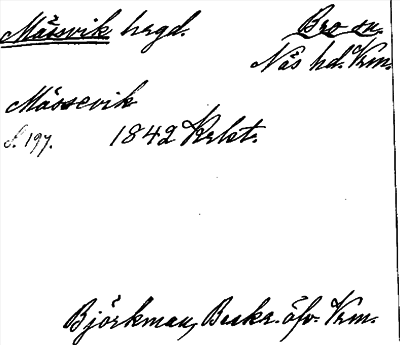 Mässvik hrgd. Bro sn.
Näs hd. Vrm.
Mässevik
S. 197. 1842 Krkt.
Björkman, Beskr. öfv. Vrm.